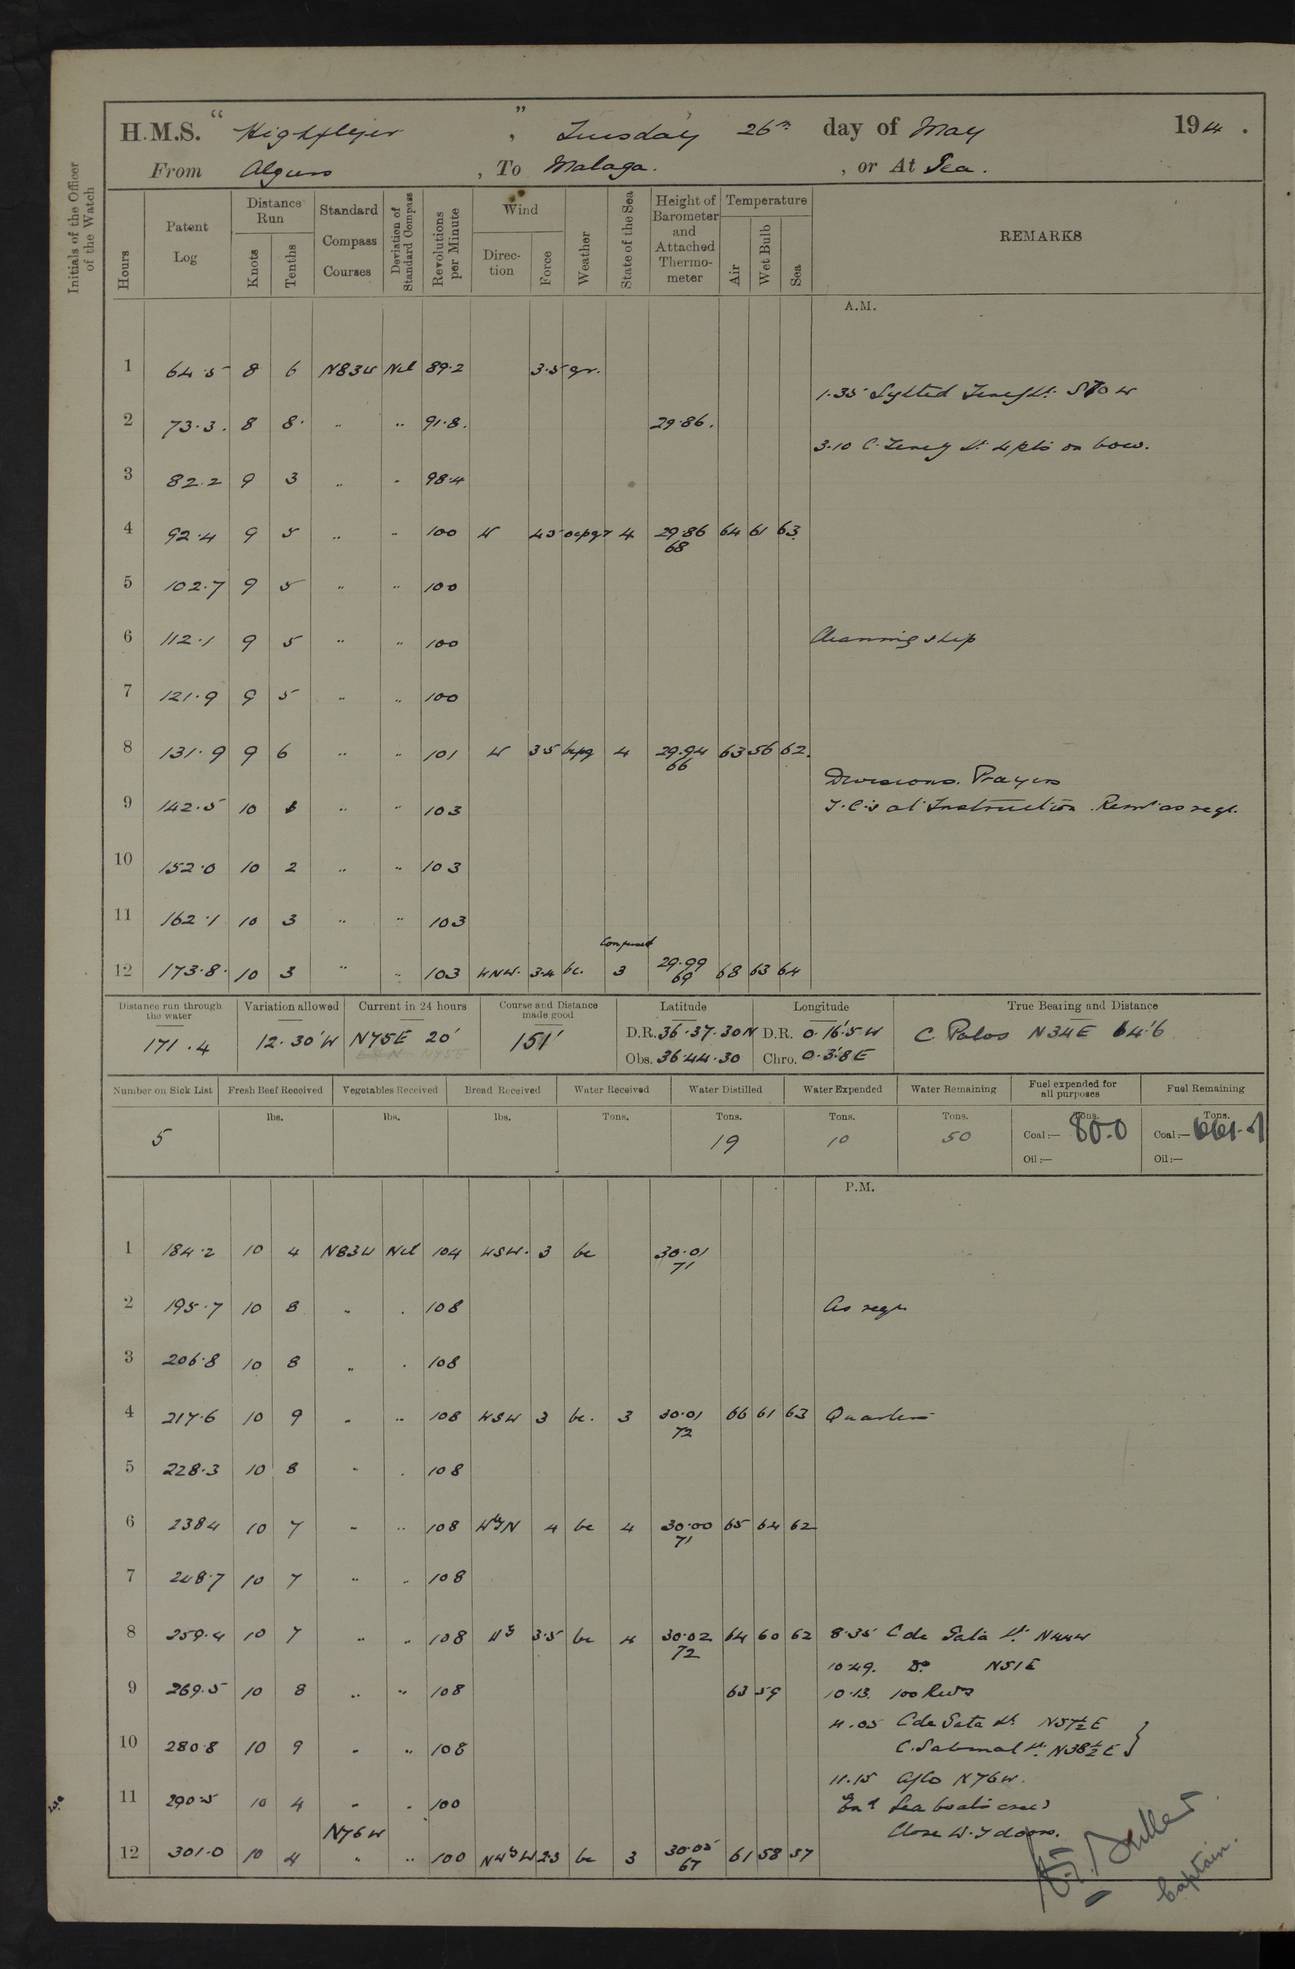 H.M.S. " Highflyer ", Tuesday 26th day of May 1914.
From Algiers, To Malaga., or At Sea.
Initials of the Officer of the Watch
Hours Patent Log Distance Run Knots Tenths Standard Compass Courses Deviation of Standard Compass Revolutions per Minute Wind Direction Force Weather State of the Sea Height of Barometer and Attached Thermometer Temperature Air Wet Bulb Sea REMARKS
A.M.
1 64.5 8 6 N83W Nil 89.2 3.5 gr.
1.35 Sighted Tenez Lt. S70W
2 73.3. 8 8. " " 91.8. 29.86.
3.10 C. Tenez Lt. 4 pts on bow.
3 82.2 9 3 " " 98.4
4 92.4 9 5 " " 100 W 4.5 ocpqr 4 29.86 68 64 61 63.
5 102.7 9 5 " " 100
6 112.1 9 5 " " 100 Cleaning ship
7 121.9 9 5 " " 100
8 131.9 9 6 " " 101 W 3.5 bcpq 4 29.94 66 63 56 62.
Divisions. Prayers
9 142.5 10 " " 103 T.C's at Instruction. Remr. as reqr.
10 152.0 10 2 " " 103
11 162.1 10 3 " " 103
12 173.8. 10 3 " " 103 WNW. 3.4 bc. Confused 3 29.99 69 68 63 64
Distance run through the water Variation allowed Current in 24 hours Course and Distance made good Latitude Longitude True Bearing and Distance
171.4 12.30'W N75E 20' 151' D.R. 36.37.30N D.R. 0.16.5W C. Palos N34E 64.6
Obs. 36.44.30 Chro. 0.3.8E
Number on Sick List Fresh Beef Received Vegetables Received Bread Received Water Received Water Distilled Water Expended Water Remaining Fuel expended for all purposes Fuel Remaining
lbs. lbs. lbs. Tons. Tons. Tons. Tons. Tons. Tons.
5 19 10 50 Coal:— 80.0 Coal:—
Oil:— Oil:—
P.M.
1 184.2 10 4 N83W Nil 104 WSW. 3 bc 30.01 71
2 195.7 10 8 " " 108 As reqr
3 206.8 10 8 " " 108
4 217.6 10 9 " " 108 WSW 3 bc. 3 30.01 72 66 61 63 Quarters
5 228.3 10 8 " " 108
6 238.4 10 7 " " 108 WbyN 4 bc 4 30.00 71 65 64 62
7 248.7 10 7 " " 108
8 259.4 10 7 " " 108 3.5 bc 4 30.02 72 64 60 62 8.35 C de Gata Lt. N44W
10.49. Do N51E
9 269.5 10 8 " " 108 63 59 10.13. 100 Revs
11.05 C de Gata Lt. N57½E
10 280.8 10 9 " " 108 C. Sabinal Lt. N38½E }
11.15 A/Co N76W.
11 290.5 10 4 " " 100 Exd Sea boats crews
N76W Close W.T. doors.
12 301.0 10 4 " " 100 NWbW 2.3 bc 3 30.05 67 61 58 57
Captain.